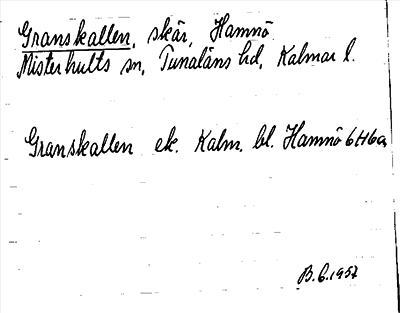 Granskallen, skär, Hamnö
Misterhults sn, Tunaläns hd, Kalmar l.
Granskallen ek. Kalm. bl. Hamnö 6H6a
B.G.1957